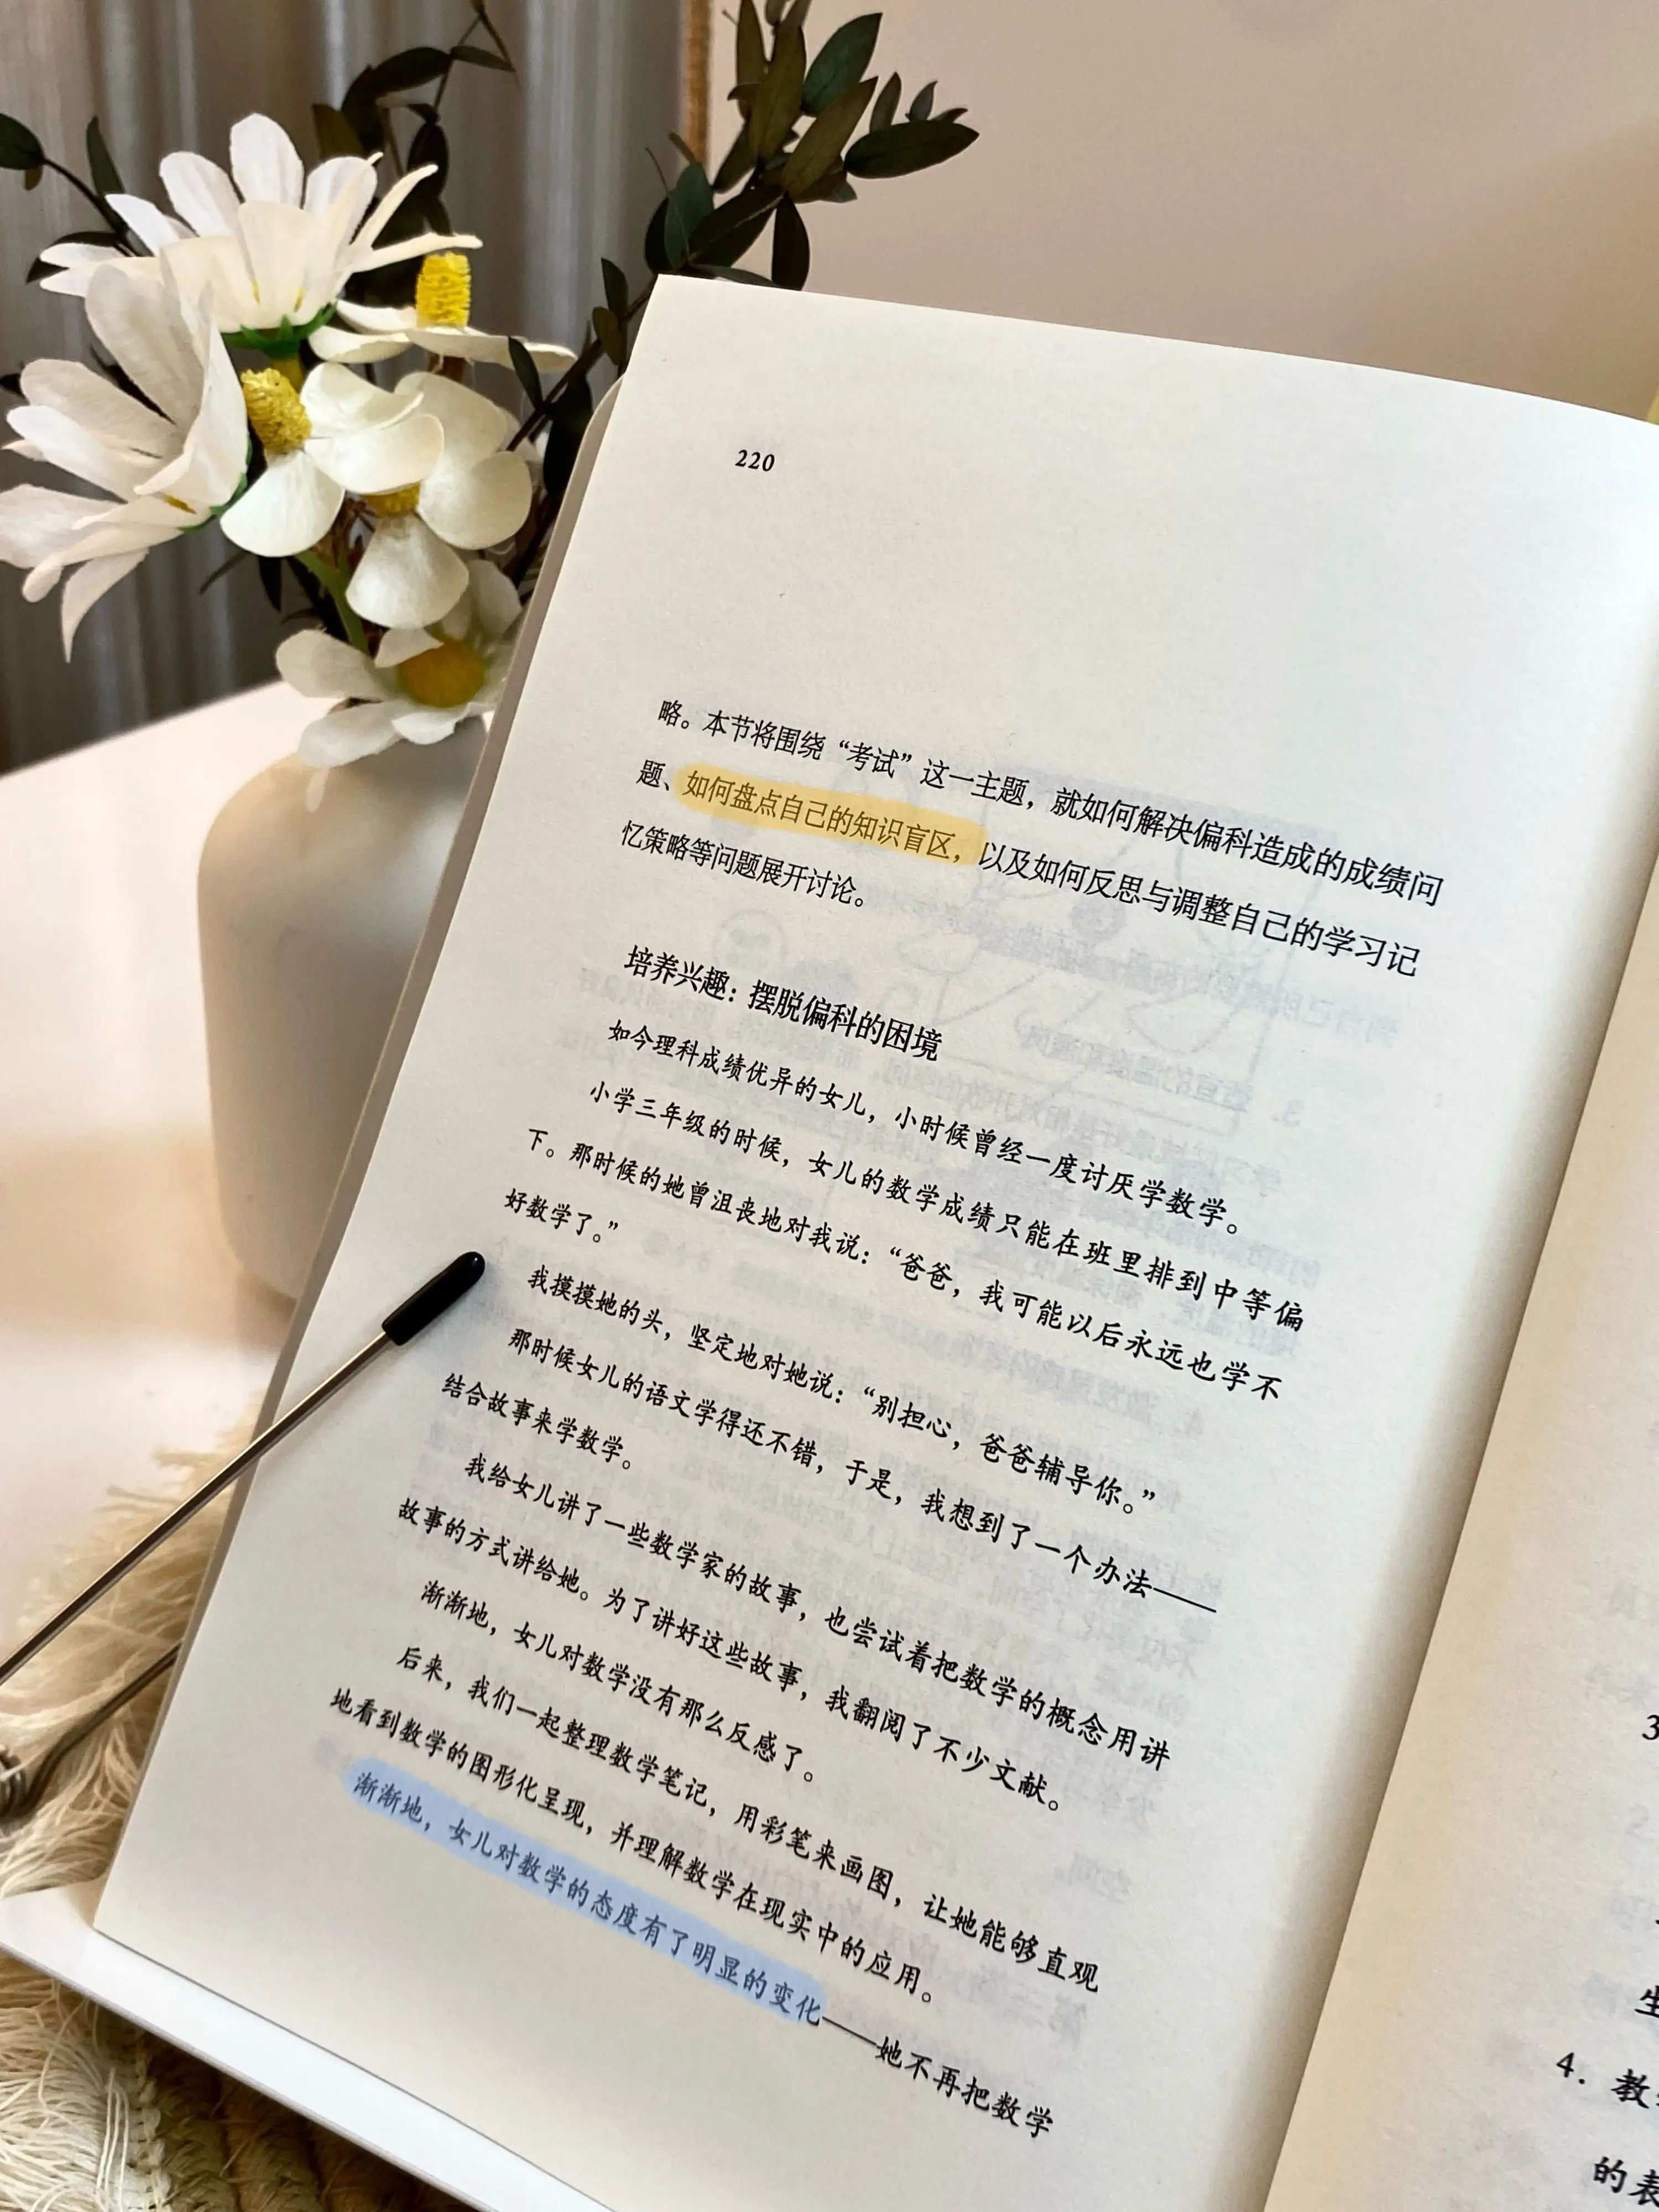 220
略。本节将围绕“考试”这一主题，就如何解决偏科造成的成绩问
题、如何盘点自己的知识盲区，以及如何反思与调整自己的学习记
忆策略等问题展开讨论。
培养兴趣：摆脱偏科的困境
如今理科成绩优异的女儿，小时候曾经一度讨厌学数学。
小学三年级的时候，女儿的数学成绩只能在班里排到中等偏
下。那时候的她曾沮丧地对我说：“爸爸，我可能以后永远也学不
好数学了。”
我摸摸她的头，坚定地对她说：“别担心，爸爸辅导你。”
那时候女儿的语文学得还不错，于是，我想到了一个办法——
结合故事来学数学。
我给女儿讲了一些数学家的故事，也尝试着把数学的概念用讲
故事的方式讲给她。为了讲好这些故事，我翻阅了不少文献。
渐渐地，女儿对数学没有那么反感了。
后来，我们一起整理数学笔记，用彩笔来画图，让她能够直观
地看到数学的图形化呈现，并理解数学在现实中的应用。
渐渐地，女儿对数学的态度有了明显的变化——她不再把数学
3
生
4. 教
的表